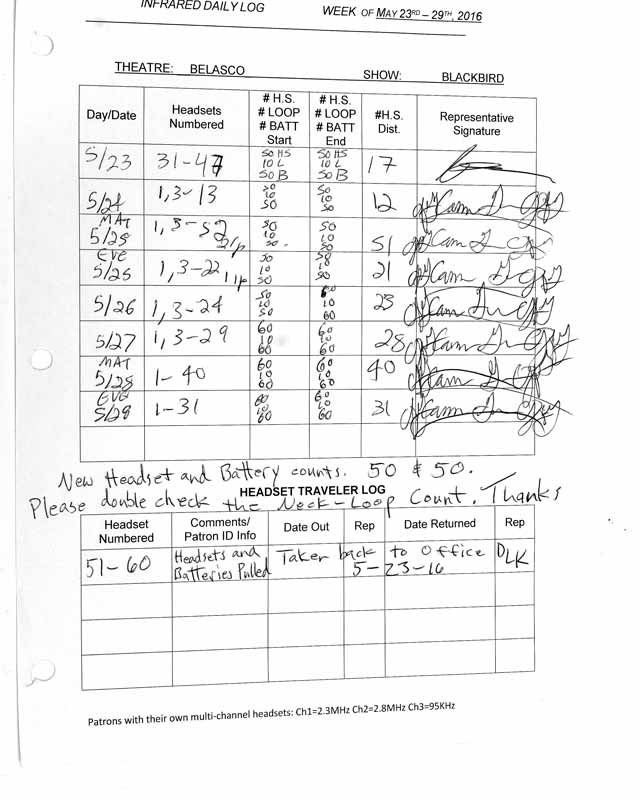 INFRARED DAILY LOG WEEK OF MAY 23RD – 29TH, 2016
THEATRE: BELASCO SHOW: BLACKBIRD
Day/Date Headsets Numbered # H.S. # LOOP # BATT Start # H.S. # LOOP # BATT End #H.S. Dist. Representative Signature
5/23 31-47 50 HS 10 L 50 B 50 HS 10 L 50 B 17
5/24 1,3-13 50 10 50 50 10 50 12
MAT 5/25 1,3-52 50 10 50 50 10 50 51
EVE 5/25 1,3-22 50 10 50 10 50 21
5/26 1,3-24 50 10 50 60 10 60 23
5/27 1,3-29 60 10 60 60 10 60 28
MAT 5/28 1-40 60 10 60 60 10 60 40
EVE 5/28 1-31 60 10 60 60 10 60 31
New Headset and Battery counts. 50 & 50.
HEADSET TRAVELER LOG
Please double check the Neck-Loop Count. Thanks
Headset Numbered Comments/ Patron ID Info Date Out Rep Date Returned Rep
51-60 Headsets and Batteries Pulled Taken back to office 5-23-16 DLK
Patrons with their own multi-channel headsets: Ch1=2.3MHz Ch2=2.8MHz Ch3=95KHz